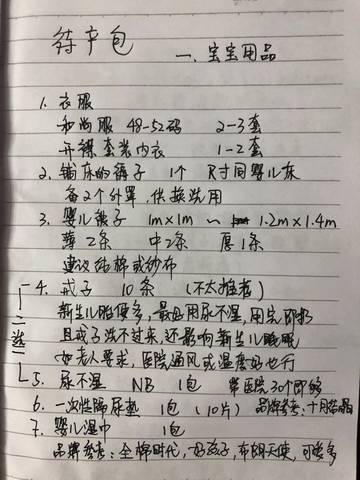 待产包
一、宝宝用品
1. 衣服
和尚服 48-52码 2-3套
开裆套装内衣 1-2套
2. 铺床的褥子 1个 尺寸同婴儿床
备2个外罩，供换洗用
3. 婴儿被子 1m×1m ~ 1.2m×1.4m
薄2条 中2条 厚1条
建议纯棉或纱布
4. 戒子 10条 (不太推荐)
新生儿胎便多，最好用尿不湿，用完即扔
且戒子洗不过来，还影响新生儿睡眠
如老人要求，医院通风或温度好也行
二选一
5. 尿不湿 NB 1包 带医院30个即够
6. 一次性隔尿垫 1包 (10片) 品牌参考：十月结晶
7. 婴儿湿巾 1包
品牌参考：全棉时代，好孩子，布朗天使，可够多